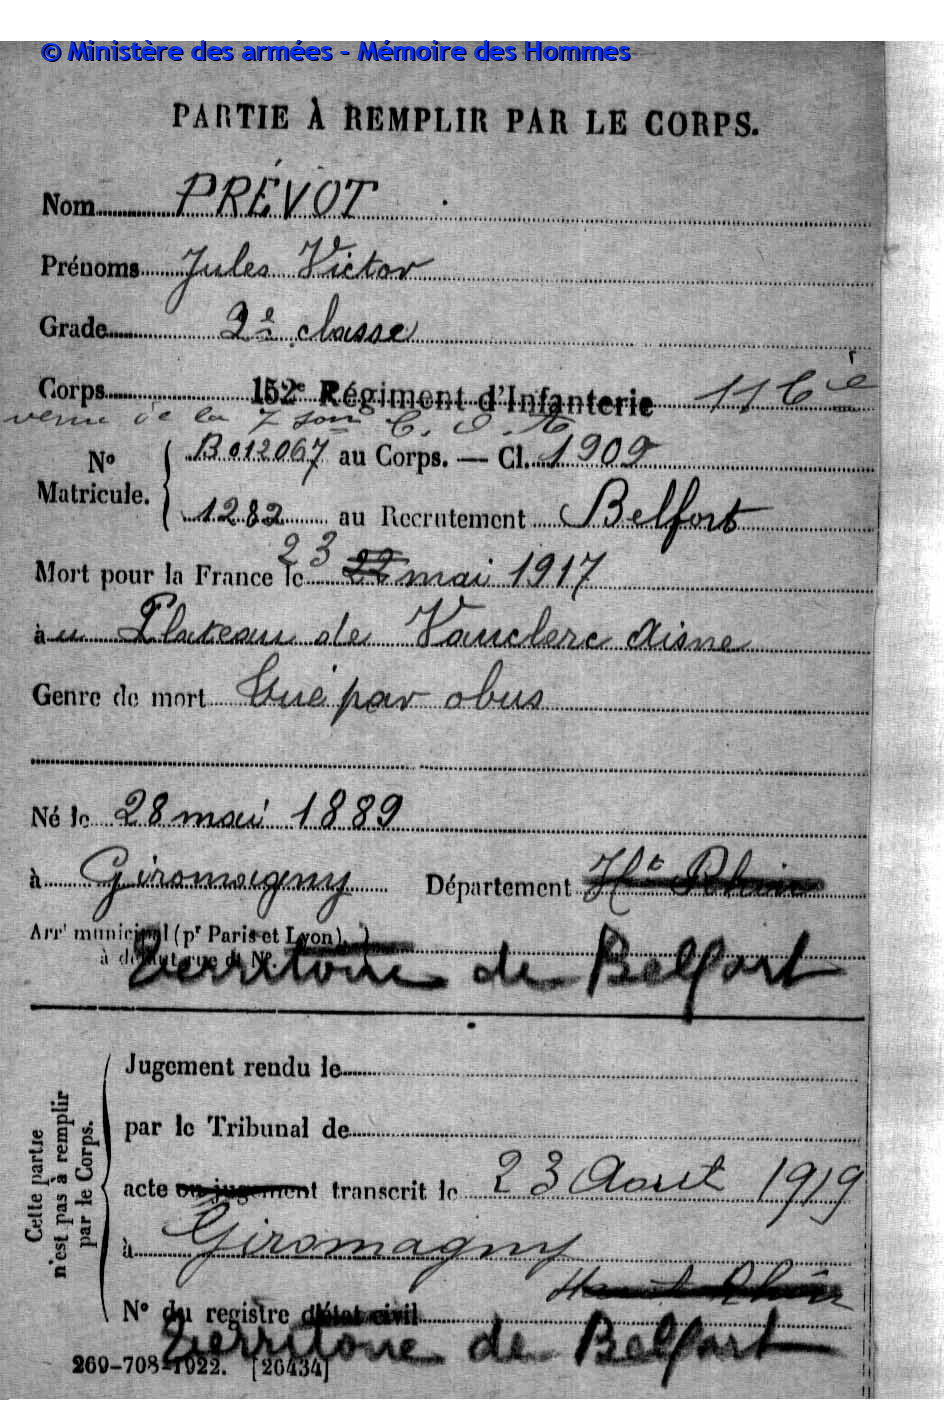 © Ministère des armées - Mémoire des Hommes
PARTIE À REMPLIR PAR LE CORPS.
Nom PRÉVOT
Prénoms Jules Victor
Grade 2e classe
Corps 152e Régiment d'Infanterie 11 Cie
venu de la 7 son C. O. A
No Matricule. B 012067 au Corps. — Cl. 1909
1282 au Recrutement Belfort
Mort pour la France le 23 22 mai 1917
à u Plateau de Vauclerc Aisne
Genre de mort Tué par obus
Né le 28 mai 1889
à Giromagny Département Ht Rhin
Arrt municipal (pr Paris et Lyon),
à défaut rue et No.
Territoire de Belfort
Cette partie n'est pas à remplir par le Corps.
Jugement rendu le
par le Tribunal de
acte ou jugement transcrit le 23 Aout 1919
à Giromagny
Haut Rhin
No du registre d'état civil
Territoire de Belfort
269-708-1922. [26434]